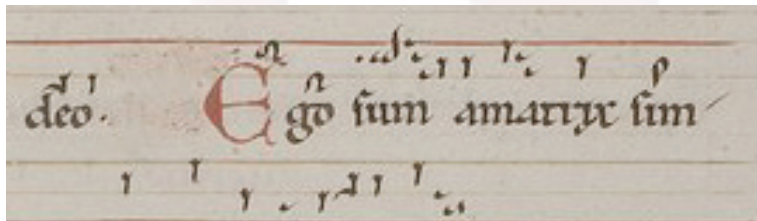 deo. Ego sum amatrix sim